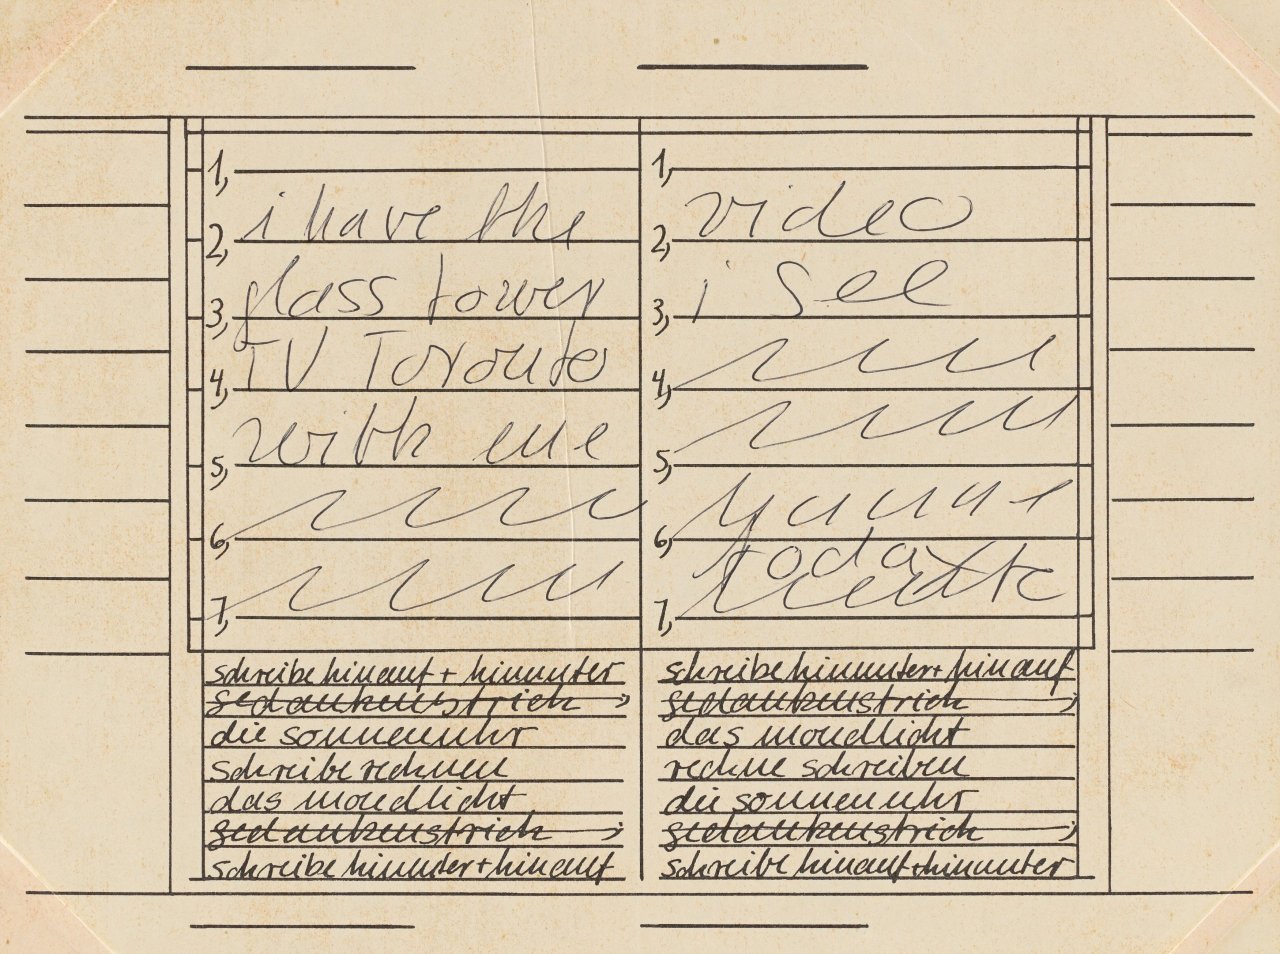 1,
i have the
2,
glass tower
3,
TV Toronto
4,
with me
5,
6,
7,
schreibe hinauf + hinunter
gedankenstrich
die sonnenuhr
schreibe rechnen
das mondlicht
gedankenstrich
schreibe hinunter + hinauf
1,
video
2,
i see
3,
4,
5,
6,
today
heute
7,
schreibe hinunter + hinauf
gedankenstrich
das mondlicht
rechne schreiben
die sonnenuhr
gedankenstrich
schreibe hinauf + hinunter